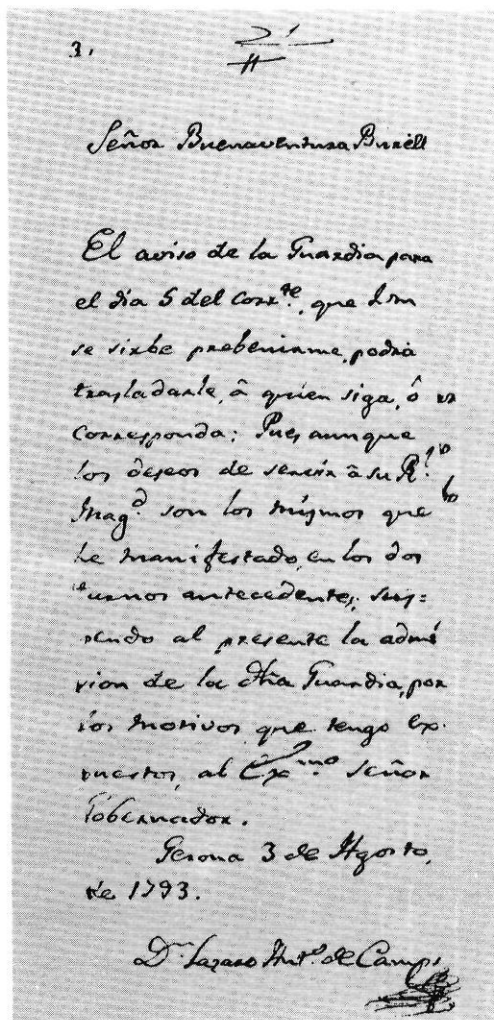 3.
Señor Buenaventura Buréll
El aviso de la Guardia para
el dia 5 del Corr.te, que Vm
se sirbe prebenirme, podrá
trasladarle, â quien siga, ô
corresponda; Pues aunque
los deseos de servir â su R.l
Mag.d son los mismos que
he manifestado, en los dos
turnos antecedentes, sus=
pendo al presente la admi
sion de la dha Guardia, por
los motivos que tengo ex
puestos, al Exc.mo Señor
Gobernador.
Gerona 3 de Agosto,
de 1793.
D.n Lazaro Ant.o de Camps